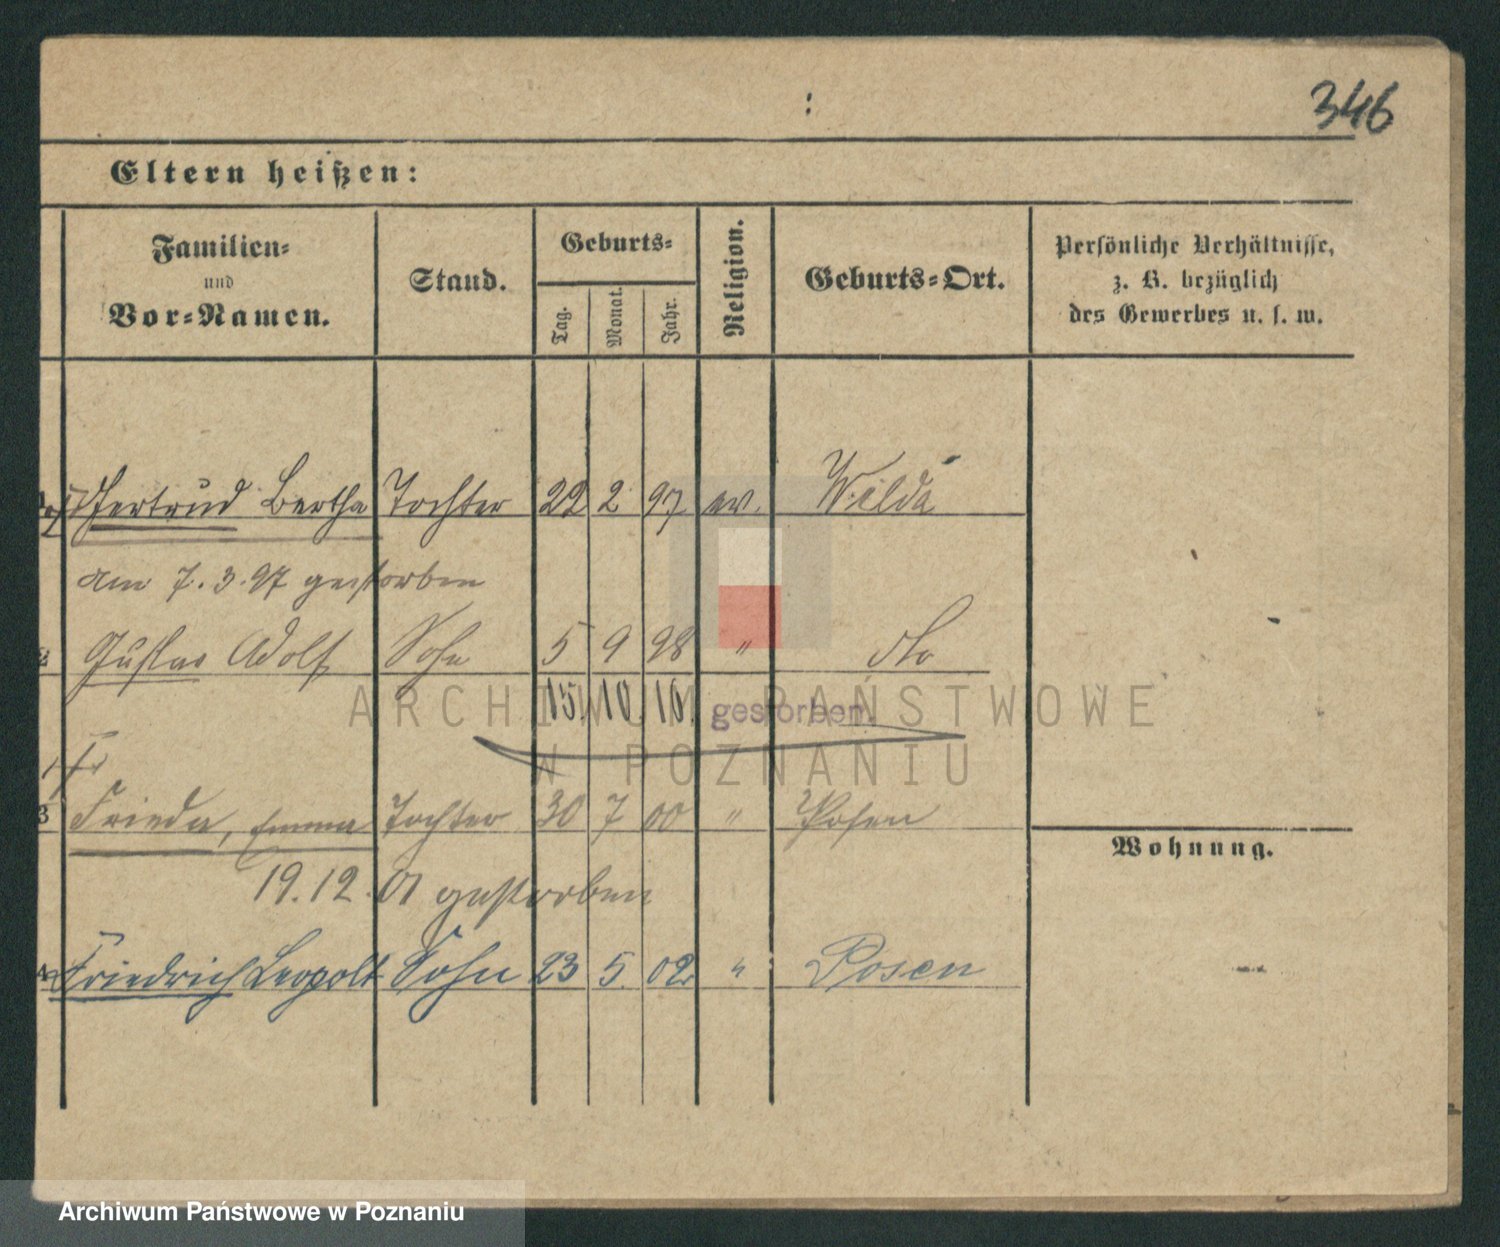 346
Eltern heißen:
Familien-
und
Vor-Namen.
Stand.
Geburts-
Tag.
Monat.
Jahr.
Religion.
Geburts-Ort.
Persönliche Verhältnisse,
z. B. bezüglich
des Gewerbes u. s. w.
Gertrud Bertha Tochter 22 2 97 ev. Wilda
am 7.3.97 gestorben
2 Gustav Adolf Sohn 5 9 98 " dto
15. 10. 10. gestorben.
3 Frieda, Emma Tochter 30 7 00 " Posen
19.12.01 gestorben
4 Friedrich Leopold Sohn 23 5. 02 " Posen
Wohnung.
ARCHIWUM PAŃSTWOWE
W POZNANIU
Archiwum Państwowe w Poznaniu